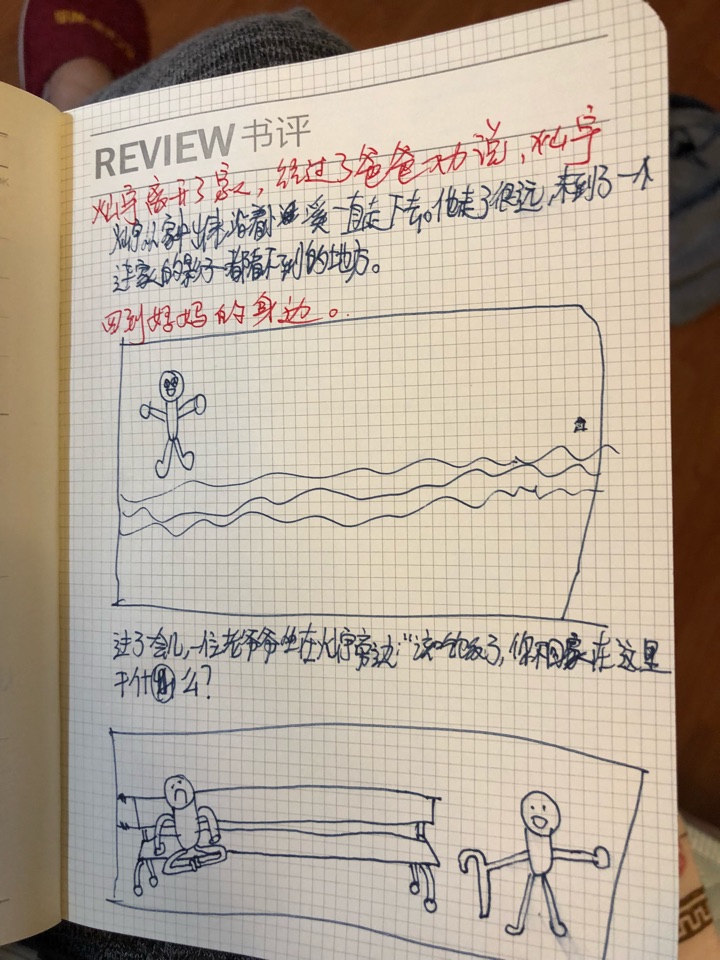 REVIEW 书评
灿宇离开了家,经过了爸爸劝说,灿宇
灿宇从家中出来,沿着小溪一直走下去。他走了很远,来到了一个
连家的影子都看不到的地方。
回到妈妈的身边。
过了会儿,一位老爷爷坐在灿宇旁边:“该吃饭了,你不回家在这里
干什么?